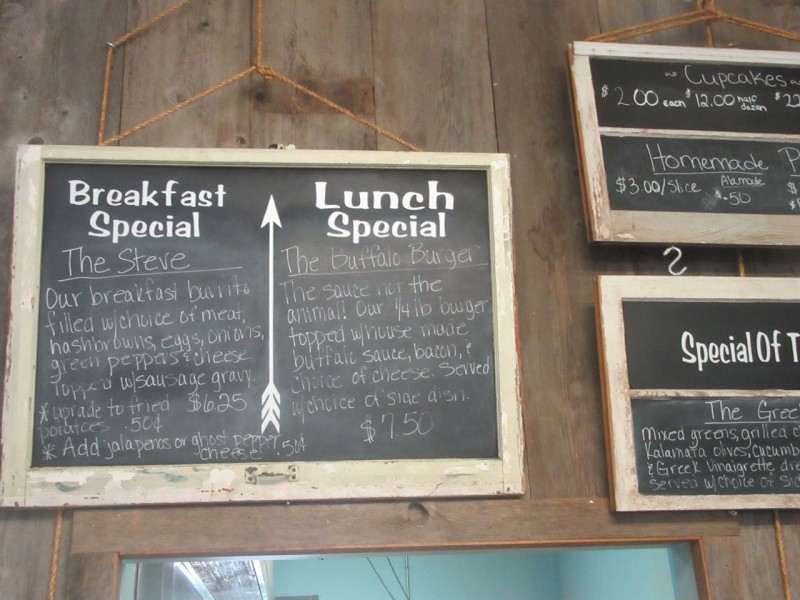 Breakfast
Special
The Steve
Our breakfast burrito
filled w/choice of meat,
hashbrowns, eggs, onions,
green peppers & cheese
Topped w/sausage gravy
$6.25
* upgrade to fried
potatoes .50¢
* Add jalapenos or ghost pepper
cheese .50¢
Lunch
Special
The Buffalo Burger
The sauce not the
animal! Our 1/4 lb burger
topped w/house made
buffalo sauce, bacon, &
choice of cheese. Served
w/choice of side dish.
$7.50
Cupcakes
$2.00 each $12.00 half dozen $22
Homemade P
$3.00/Slice Alamode
$.50
Special Of T
The Gree
Mixed greens, grilled c
Kalamata olives, cucumb
& Greek Vinaigrette dre
served w/choice of sid